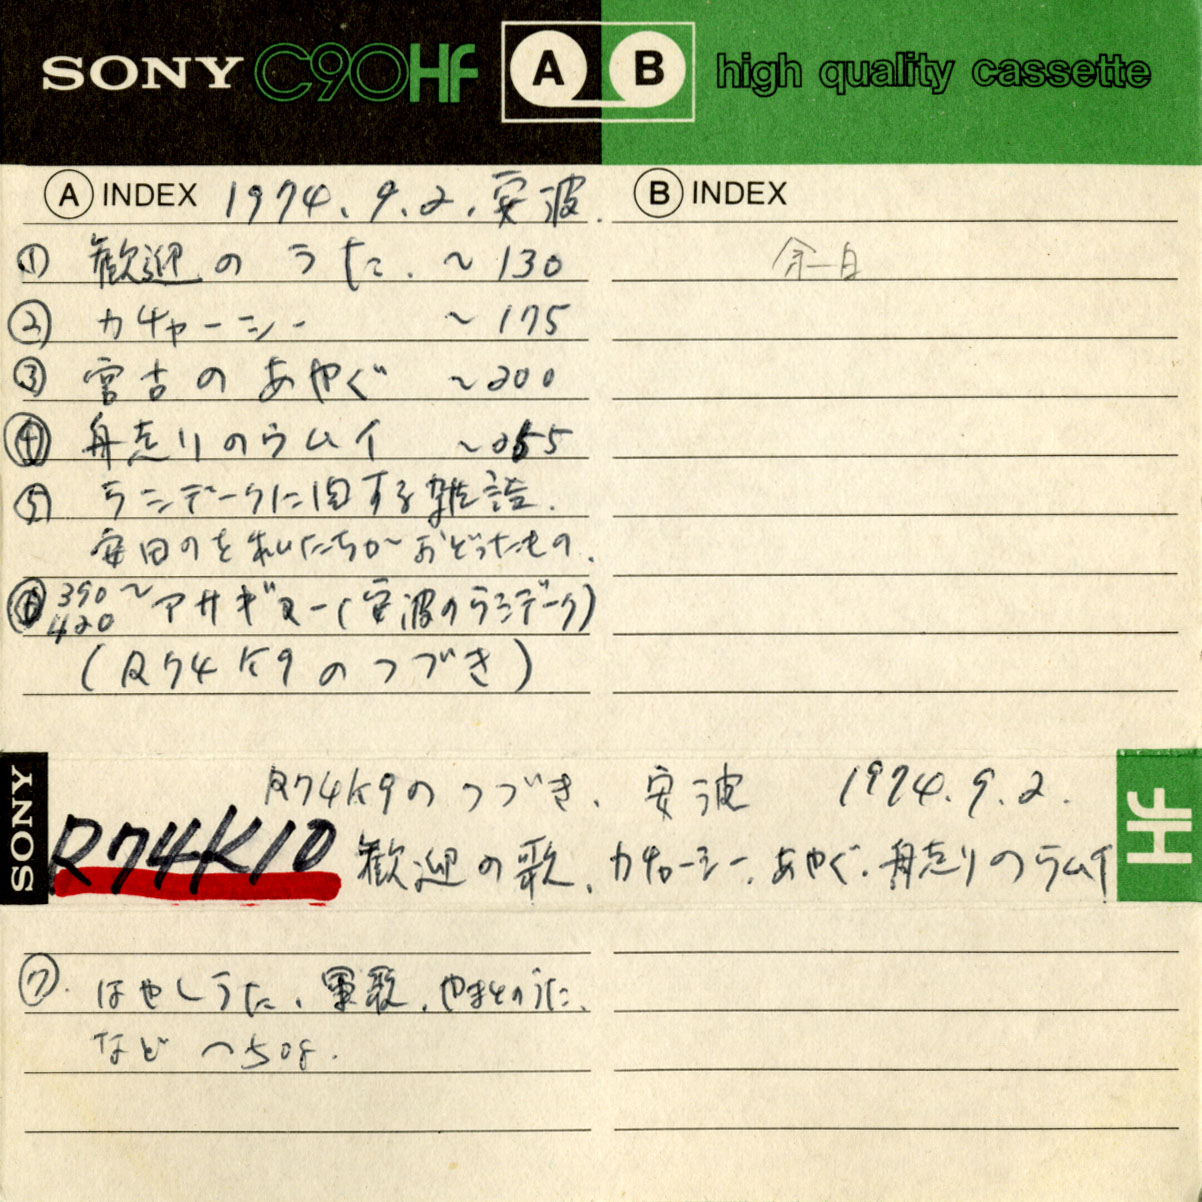 SONY C90HF A B high quality cassette
A INDEX 1974.9.2.安波.
① 歓迎のうた.~130
② カチャーシー ~175
③ 宮古のあやぐ ~200
④ 舟走りのウムイ ~255
⑤ ウシデークに関する雑談.
安田のを私たちがおどったもの.
⑥ 390~ アサギマー(安波のウシデーク)
420
(R74K9のつづき)
B INDEX
余白
SONY
R74K9のつづき. 安波 1974.9.2.
R74K10 歓迎の歌、カチャーシー、あやぐ、舟走りのウムイ
HF
⑦. はやしうた、軍歌、やまとのうた、
など ~508.